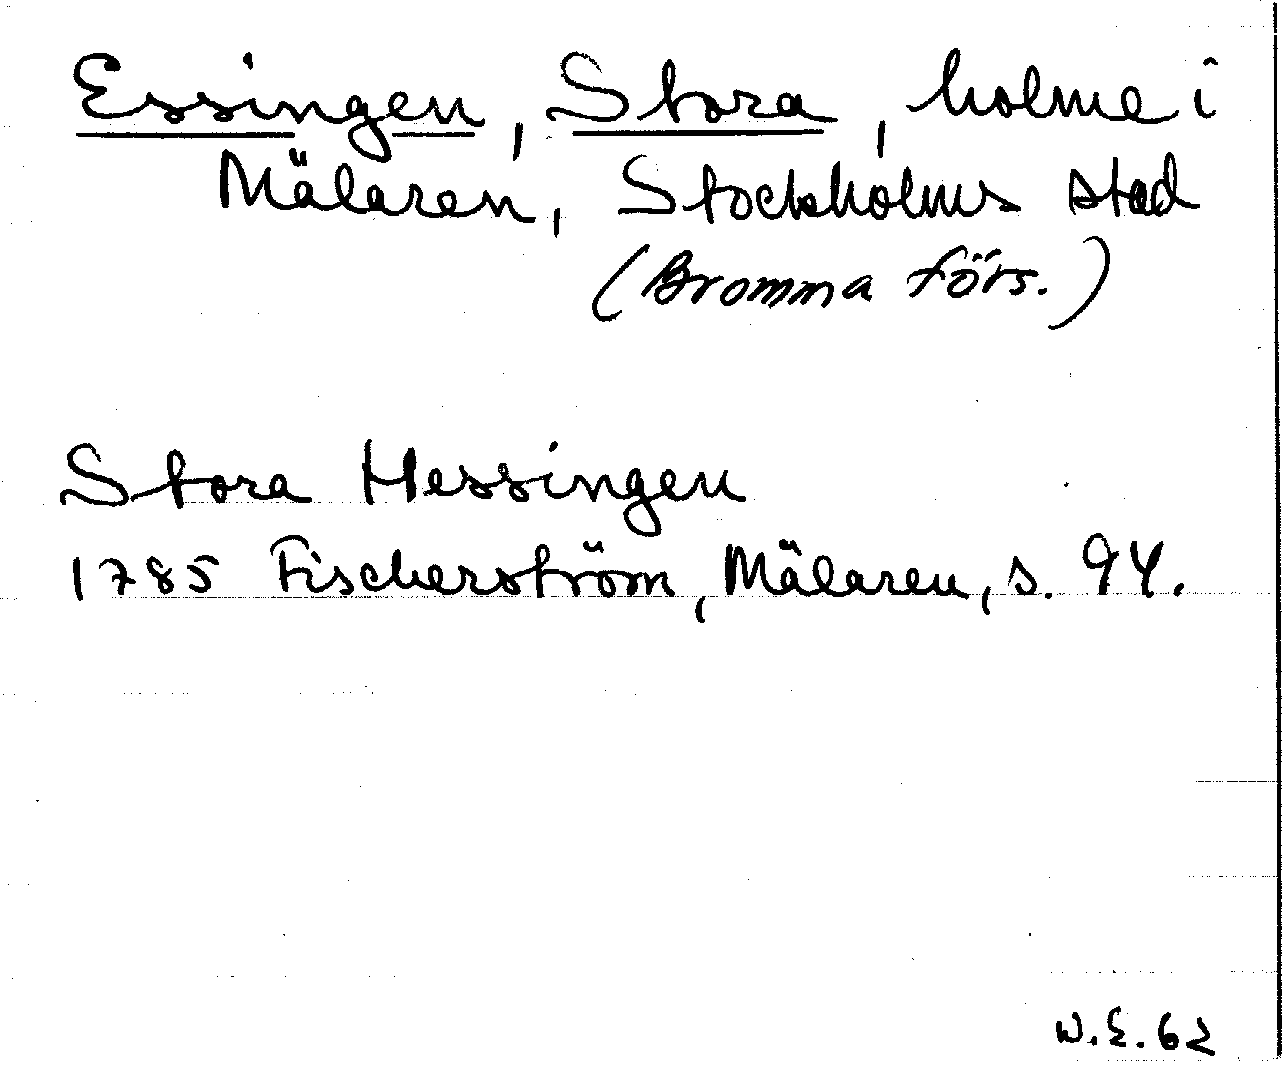 Essingen, Stora, holme i
Mälaren, Stockholms stad
(Bromma förs.)
Stora Hessingen
1785 Fischerström, Mälaren, s. 94.
W.E. 62